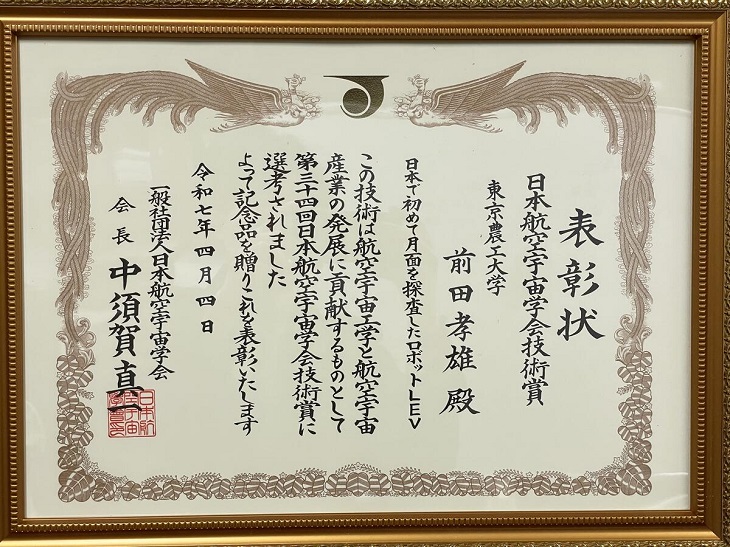 表彰状
日本航空宇宙学会技術賞
東京農工大学
前田孝雄 殿
日本で初めて月面を探査したロボットLEV
この技術は航空宇宙工学と航空宇宙
産業の発展に貢献するものとして
第三十四回日本航空宇宙学会技術賞に
選考されました
よって記念品を贈りこれを表彰いたします
令和七年四月四日
一般社団法人日本航空宇宙学会
会長 中須賀真一